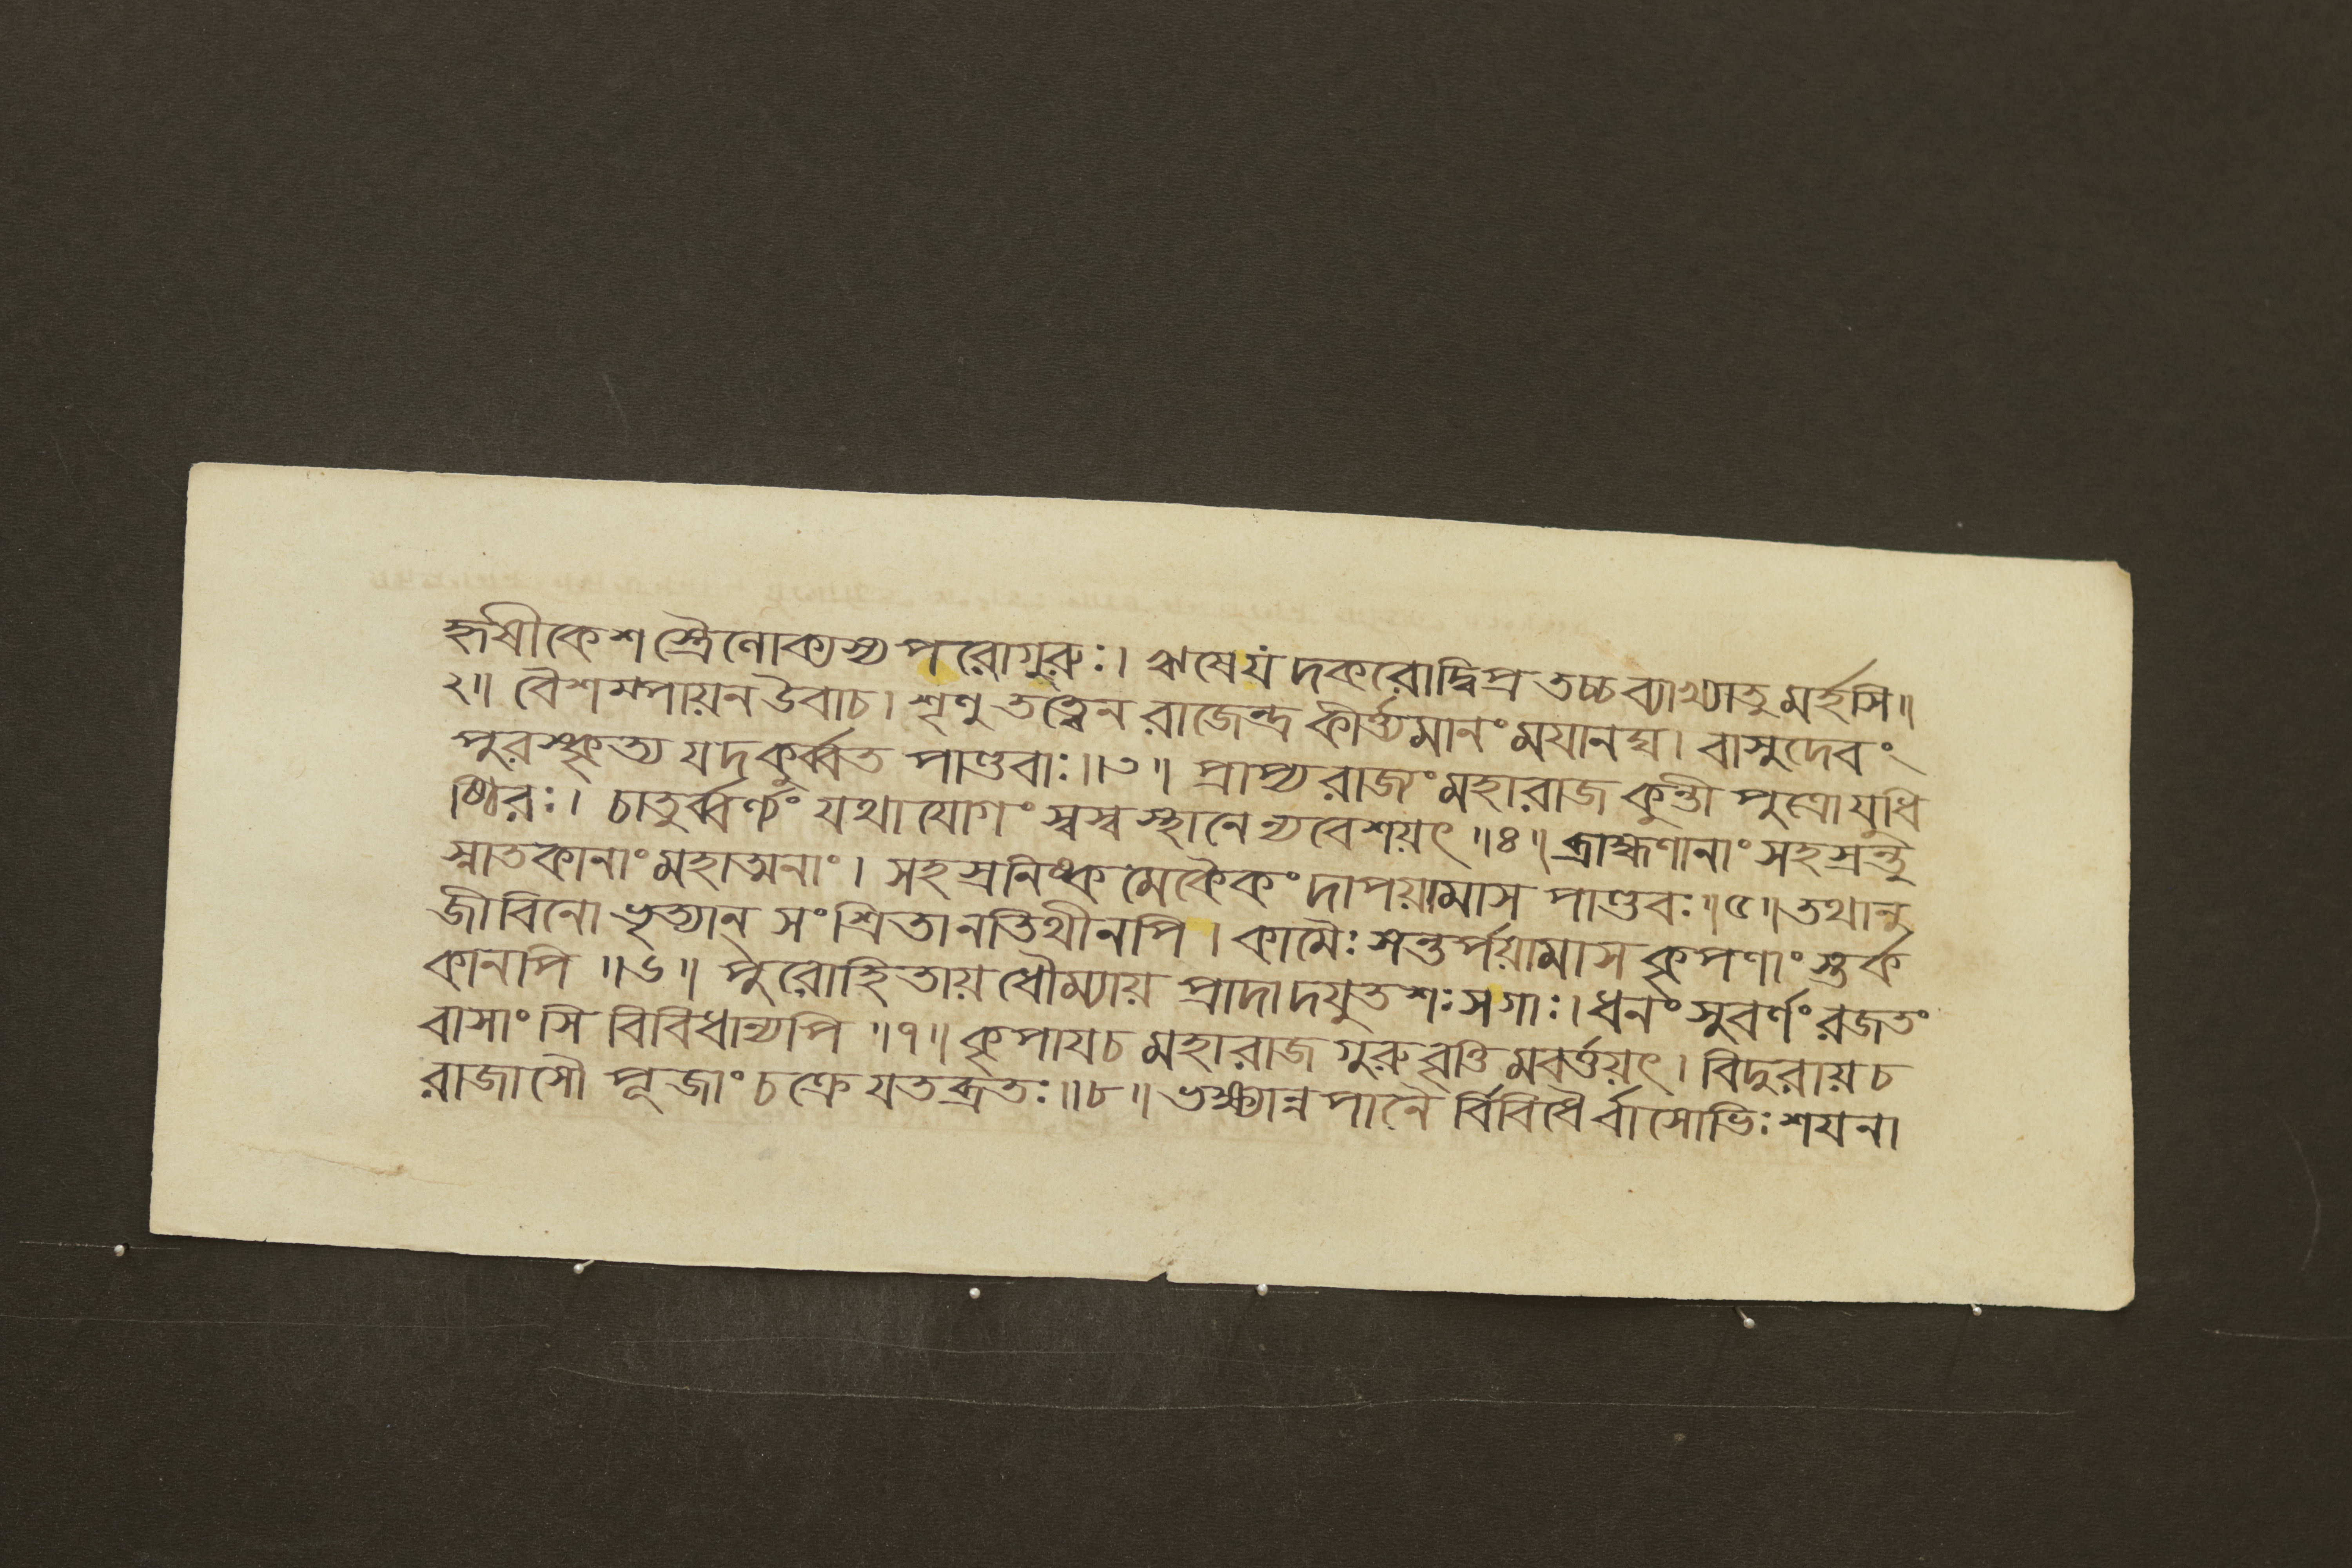 হৃষীকেশস্ত্রৈলোক্যস্য পরোগুরুঃ। ঋষেযদকরোদ্বিপ্র তচ্চব্যাখ্যাতুমর্হসি॥
২॥ বৈশম্পায়ন উবাচ। শৃণু তত্ত্বেন রাজেন্দ্র কীর্ত্ত্যমানং ময়ানঘ। বাসুদেবং
পুরস্কৃত্য যদকুর্ব্বত পাণ্ডবাঃ॥৩॥ প্রাপ্য রাজ্যং মহারাজ কুন্তীপুত্রো যুধি
ষ্ঠিরঃ। চাতুর্ব্বর্ণ্যং যথাযোগং স্বস্ব স্থানে ন্যবেশয়ৎ॥৪॥ ব্রাহ্মণানাং সহস্রন্তু
স্নাতকানাং মহাত্মনাং। সহস্রনিষ্কমেকৈকং দাপয়ামাস পাণ্ডবঃ॥৫॥ তথানু
জীবিনো ভৃত্যান্ সংশ্রিতানতিথীনপি। কামৈঃ সন্তর্পয়ামাস কৃপণাংস্তর্ক
কানপি॥৬॥ পুরোহিতায় ধৌম্যায় প্রাদাদযুতশঃ সগাঃ। ধনং সুবর্ণং রজতং
বাসাংসি বিবিধান্যপি॥৭॥ কৃপায়চ মহারাজ গুরুবৃত্তিমবর্ত্তয়ৎ। বিদুরায়চ
রাজাসৌ পূজাং চক্রে যতব্রতঃ॥৮॥ ভক্ষ্যান্নপানৈর্ব্বিবিধৈর্বাসোভিঃ শয়না